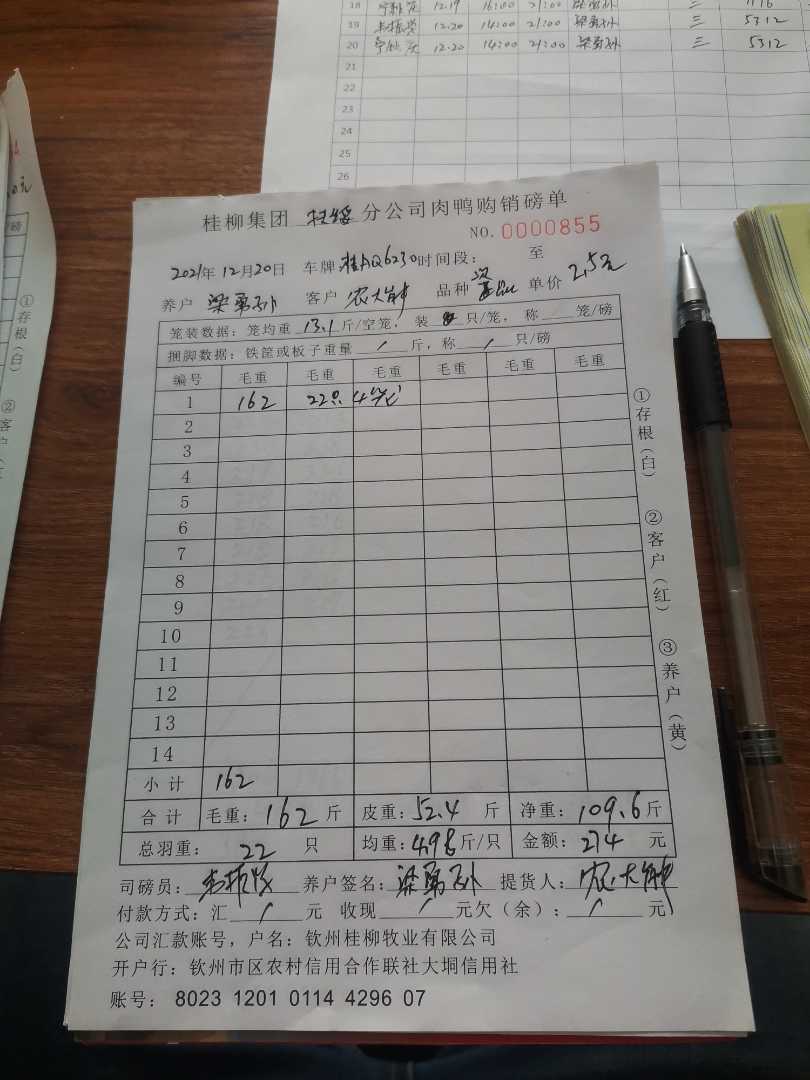 18 12.19 16:00 21:00 三
19 12.20 14:00 21:00 梁勇孙 三 5312
20 12.20 14:00 21:00 梁勇孙 三 5312
21
22
23
24
25
26
桂柳集团 扶绥 分公司肉鸭购销磅单
NO. 0000855
2021年12月20日 车牌 桂AQ6230 时间段: 至
养户 梁勇孙 客户 农大 品种 单价 2.5元
笼装数据: 笼均重 13.1 斤/空笼, 装 8 只/笼, 称 笼/磅
捆脚数据: 铁筐或板子重量 / 斤, 称 / 只/磅
编号 毛重 毛重 毛重 毛重 毛重 毛重
1 162 22只 4笼
2
3
4
5
6
7
8
9
10
11
12
13
14
小计 162
合计 毛重: 162 斤 皮重: 52.4 斤 净重: 109.6 斤
总羽重: 22 只 均重: 4.98 斤/只 金额: 274 元
司磅员: 养户签名: 梁勇孙 提货人: 农大
付款方式: 汇 / 元 收现 / 元 欠(余): / 元
公司汇款账号, 户名: 钦州桂柳牧业有限公司
开户行: 钦州市区农村信用合作联社大垌信用社
账号: 8023 1201 0114 4296 07
①存根(白)
②客户(红)
③养户(黄)
磅
①存根(白)
②客